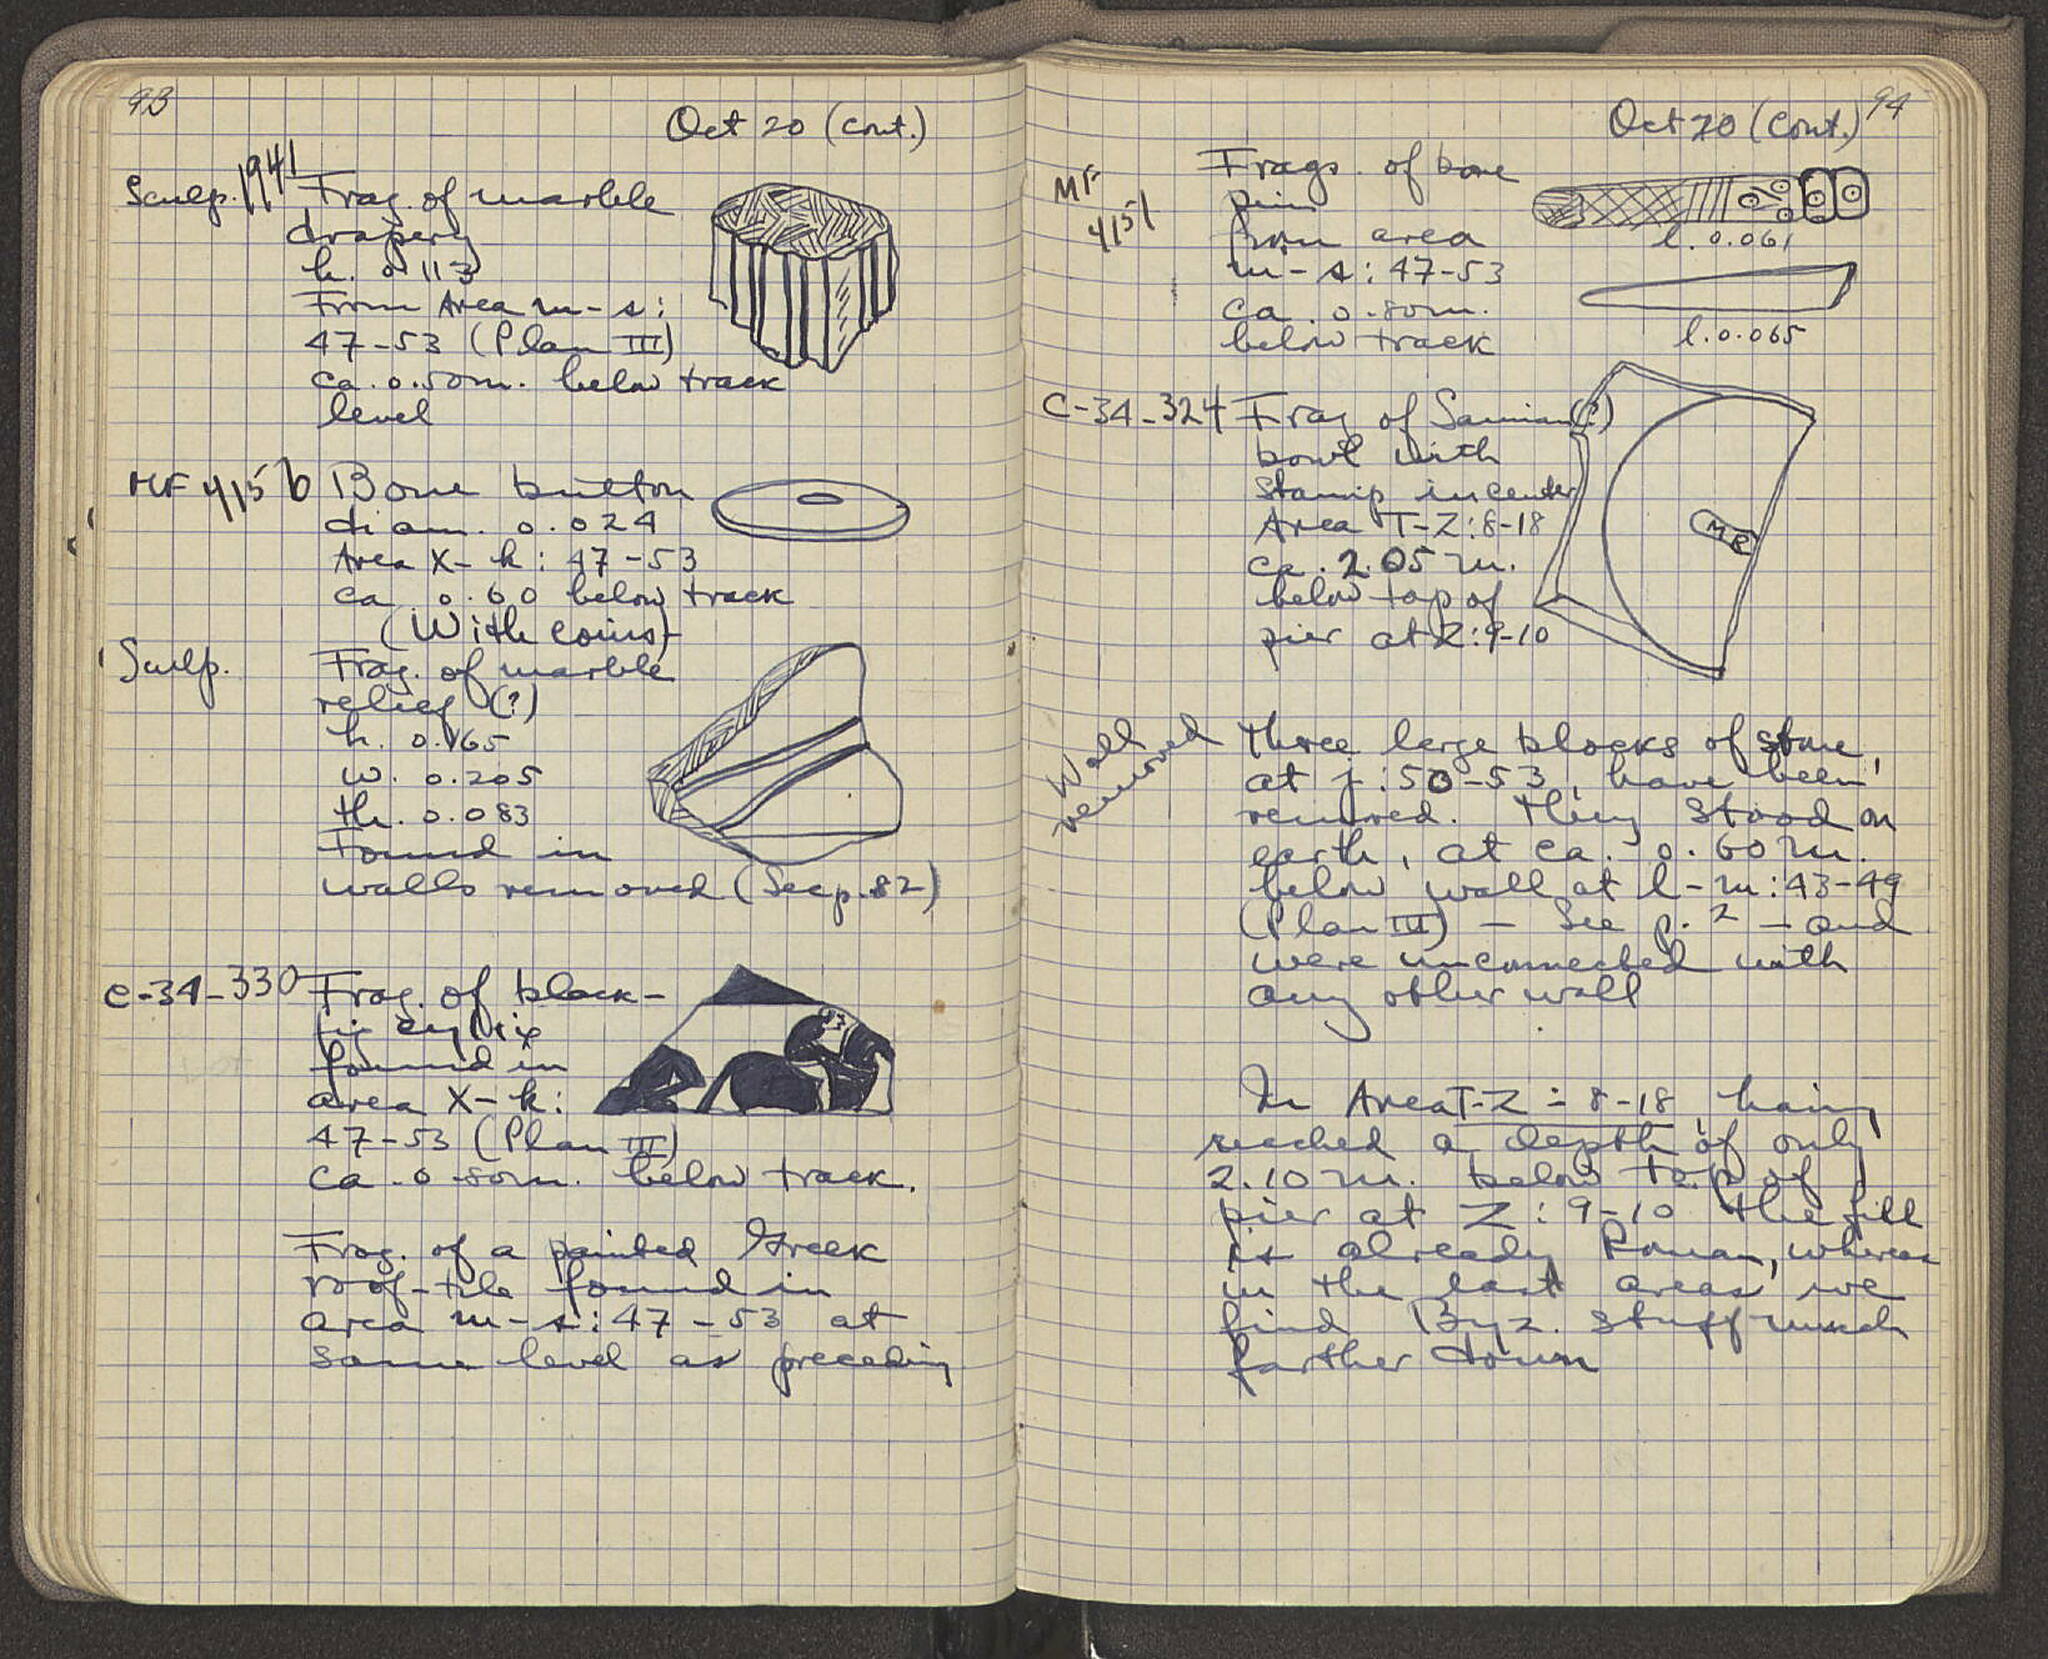 93
Oct 20 (cont.)
Sculp. 1941 Frag. of marble
drapery
h. 0.113
From Area m-s:
47-53 (Plan III)
ca. 0.50m. below track
level
MF 4156 Bone button
diam. 0.024
Area X-k: 47-53
ca 0.60 below track
(With coins)
Sculp. Frag. of marble
relief (?)
h. 0.165
w. 0.205
th. 0.083
Found in
walls removed (See p. 82)
C-34-330 Frag. of black-
fig cylix
found in
area X-k:
47-53 (Plan III)
ca. 0.80m. below track.
Frag. of a painted Greek
roof-tile found in
area m-s: 47-53 at
same level as preceding
94
Oct 20 (cont.)
MF 4151
Frags. of bone
pin
from area
m-s: 47-53
ca. 0.80m.
below track
l. 0.061
l. 0.065
C-34-324 Frag of Samian (?)
bowl with
stamp in center
Area T-Z: 8-18
ca. 2.05 m.
below top of
pier at Z: 9-10
MR
Wall
removed
Three large blocks of stone,
at j: 50-53, have been
removed. They stood on
earth, at ca. 0.60 m.
below wall at l-m: 43-49
(Plan III) - See p. 2 - and
were unconnected with
any other wall
In Area T-Z: 8-18, having
reached a depth of only
2.10 m. below top of
pier at Z: 9-10 the fill
is already Roman, whereas
in the last areas we
find Byz. stuff much
farther down